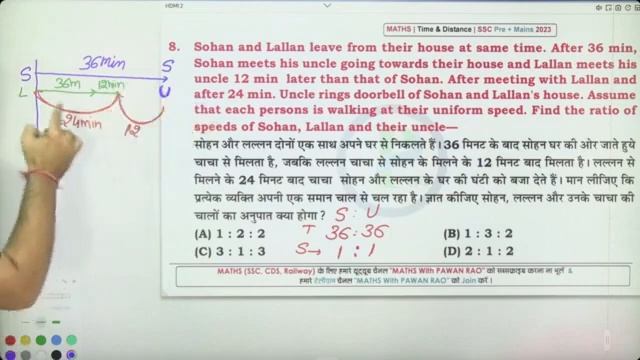 HDMI 2
MATHS | Time & Distance | SSC Pre + Mains 2023
36min
S S
36m 12min
L U
24min 12
8. Sohan and Lallan leave from their house at same time. After 36 min,
Sohan meets his uncle going towards their house and Lallan meets his
uncle 12 min later than that of Sohan. After meeting with Lallan and
after 24 min. Uncle rings doorbell of Sohan and Lallan's house. Assume
that each persons is walking at their uniform speed. Find the ratio of
speeds of Sohan, Lallan and their uncle—
सोहन और लल्लन दोनों एक साथ अपने घर से निकलते हैं। 36 मिनट के बाद सोहन घर की ओर जाते हुये
चाचा से मिलता है, जबकि लल्लन चाचा से सोहन के मिलने के 12 मिनट बाद मिलता है। लल्लन से
मिलने के 24 मिनट बाद चाचा सोहन और लल्लन के घर की घंटी को बजा देते हैं। मान लीजिए कि
प्रत्येक व्यक्ति अपनी एक समान चाल से चल रहा है। ज्ञात कीजिए सोहन, लल्लन और उनके चाचा की
चालों का अनुपात क्या होगा ? S : U
(A) 1 : 2 : 2 T 36 : 36 (B) 1 : 3 : 2
(C) 3 : 1 : 3 S→ 1 : 1 (D) 2 : 1 : 2
MATHS (SSC, CDS, Railway) के लिए हमारे यूट्यूब चैनल "MATHS With PAWAN RAO" को सब्सक्राइब करना ना भूलें &
हमारे टेलीग्राम चैनल "MATHS With PAWAN RAO" को Join करें।